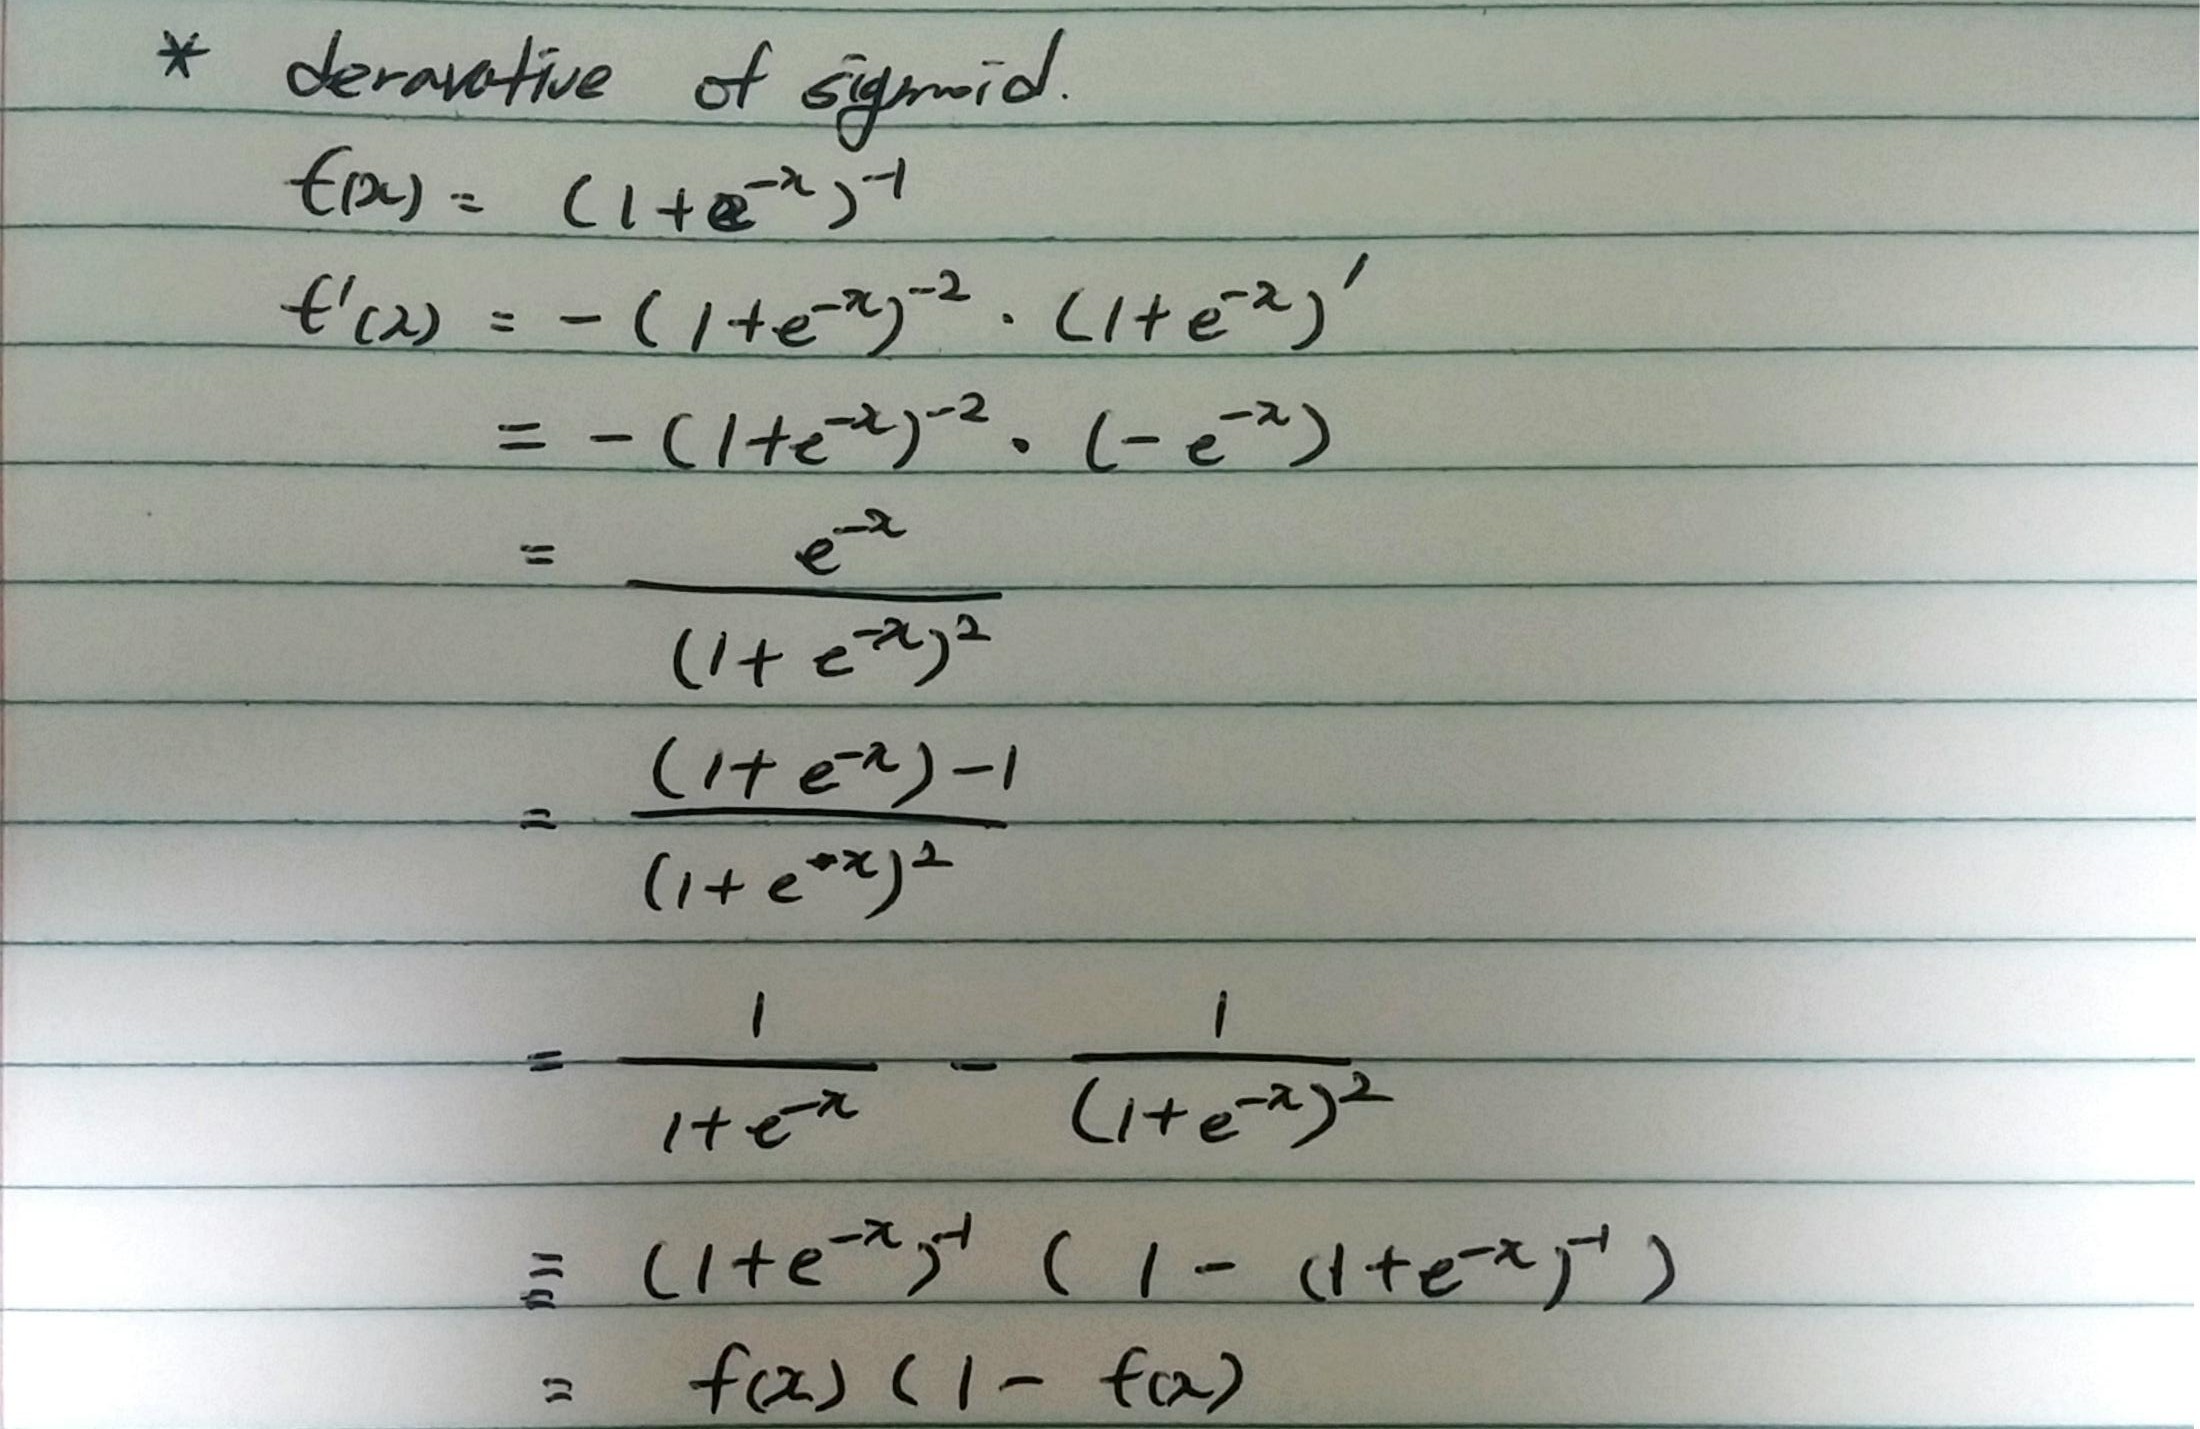 * deravative of sigmoid.
f(x) = (1+e^{-x})^{-1}
f'(x) = -(1+e^{-x})^{-2} · (1+e^{-x})'
= -(1+e^{-x})^{-2} · (-e^{-x})
= \frac{e^{-x}}{(1+e^{-x})^2}
= \frac{(1+e^{-x})-1}{(1+e^{-x})^2}
= \frac{1}{1+e^{-x}} - \frac{1}{(1+e^{-x})^2}
= (1+e^{-x})^{-1} (1 - (1+e^{-x})^{-1})
= f(x) (1 - f(x)